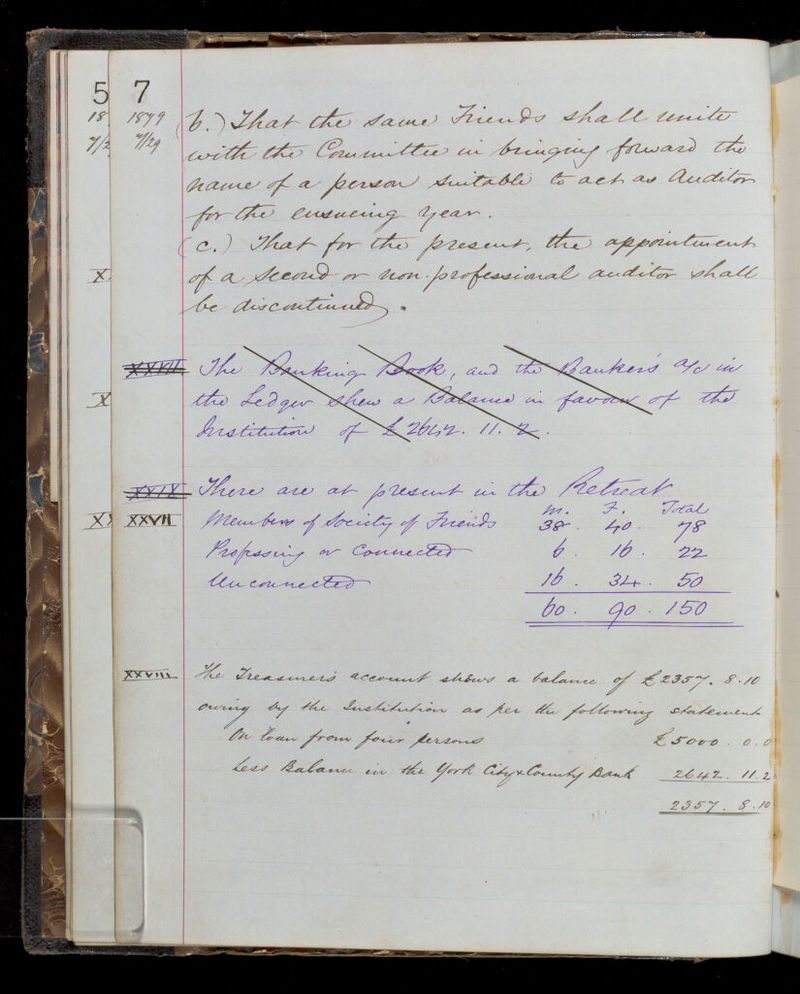 5 7
18 1879 (b.) That the same Friends shall unite
7/2 7/29 with the Committee in bringing forward the
name of a person suitable to act as Auditor
for the ensueing year.
(c.) That for the present, the appointment
X of a second or non-professional auditor shall
be discontinued.
XXVII The Banking Book, and the Bankers a/c in
X the Ledger shew a Balance in favour of the
Institution of £2642. 11. 2.
XXIX There are at present in the Retreat
M. F. Total
X XXVII Members of Society of Friends 38. 40. 78
Professing or Connected 6. 16. 22
Unconnected 16. 34. 50
60. 90. 150
XXVIII The Treasurer's account shows a balance of £2357. 8. 10
owing by the Institution as per the following statement
On loan from four persons £5000. 0. 0
Less Balance in the York City & County Bank 2642. 11. 2
2357. 8. 10